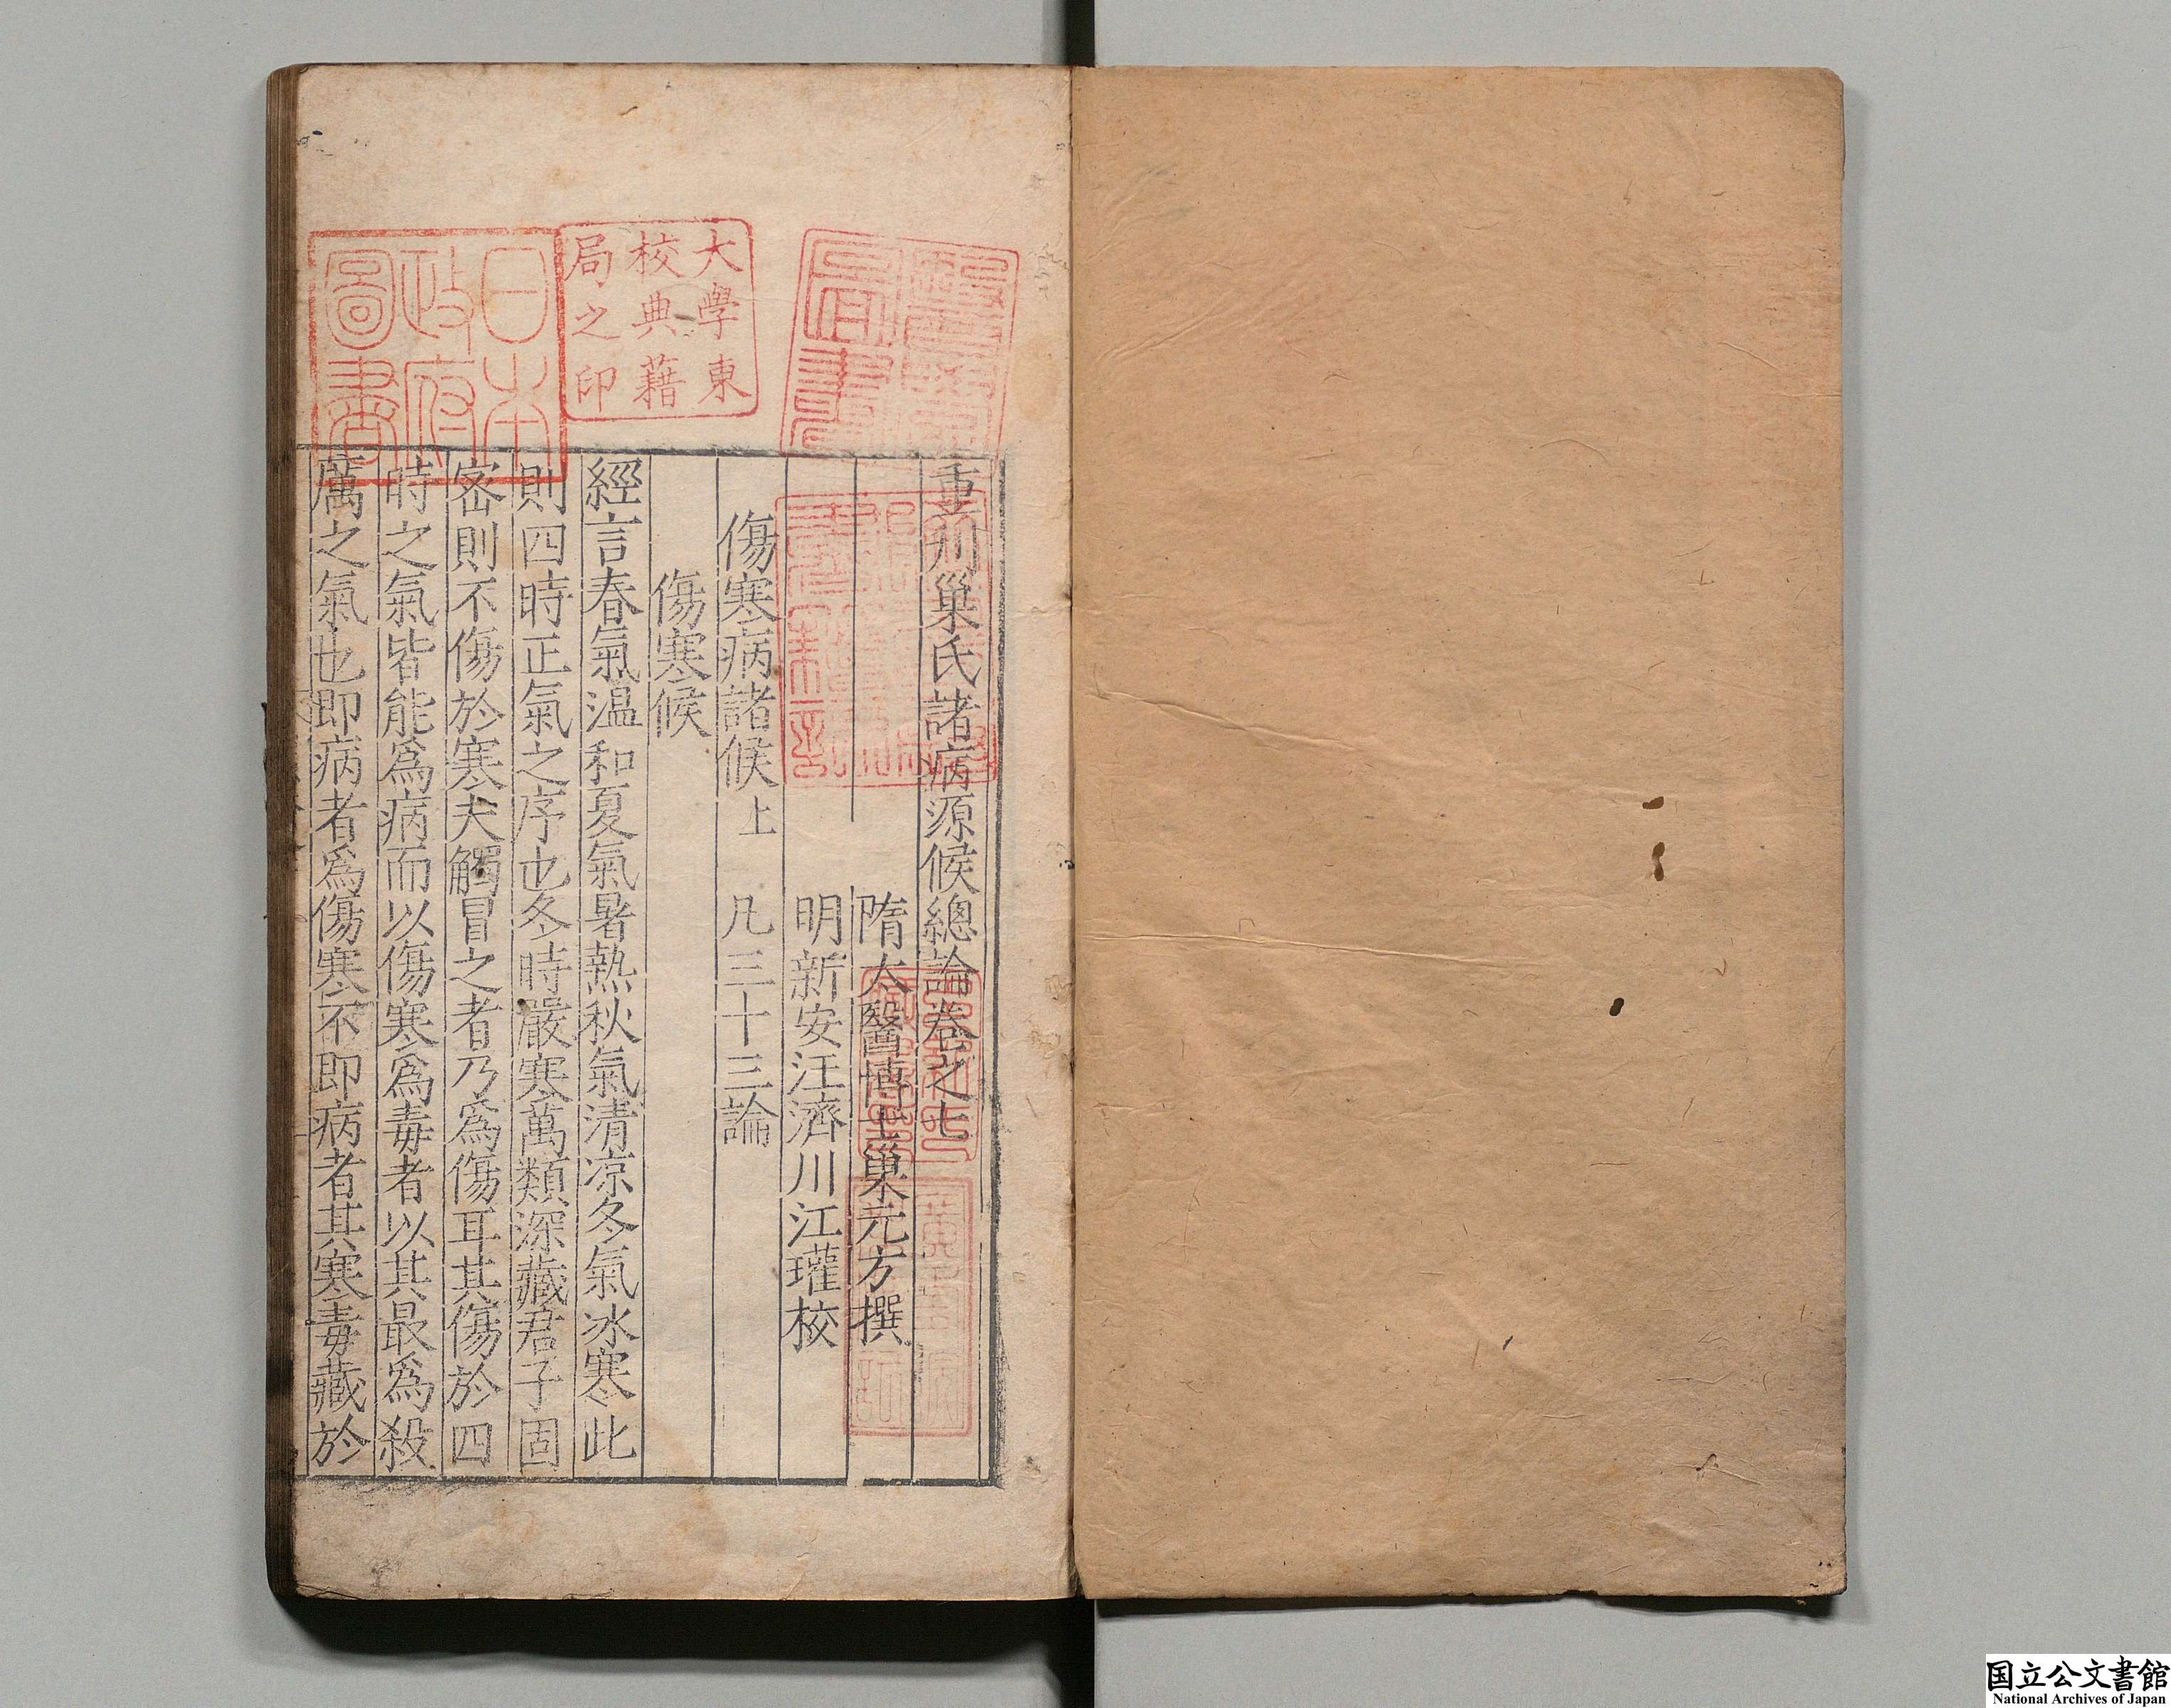 重刋巢氏諸病源候總論卷之七
隋太醫博士巢元方撰
明新安汪濟川江瓘校
傷寒病諸候上 凡三十三論
傷寒候
經言春氣温和夏氣暑熱秋氣清凉冬氣冰寒此
則四時正氣之序也冬時嚴寒萬類深藏君子固
密則不傷於寒夫觸冒之者乃爲傷耳其傷於四
時之氣皆能爲病而以傷寒爲毒者以其最爲殺
厲之氣也即病者爲傷寒不即病者其寒毒藏於
大學東
校典藉
局之印
日本
政府
圖書
国立公文書館
National Archives of Japan